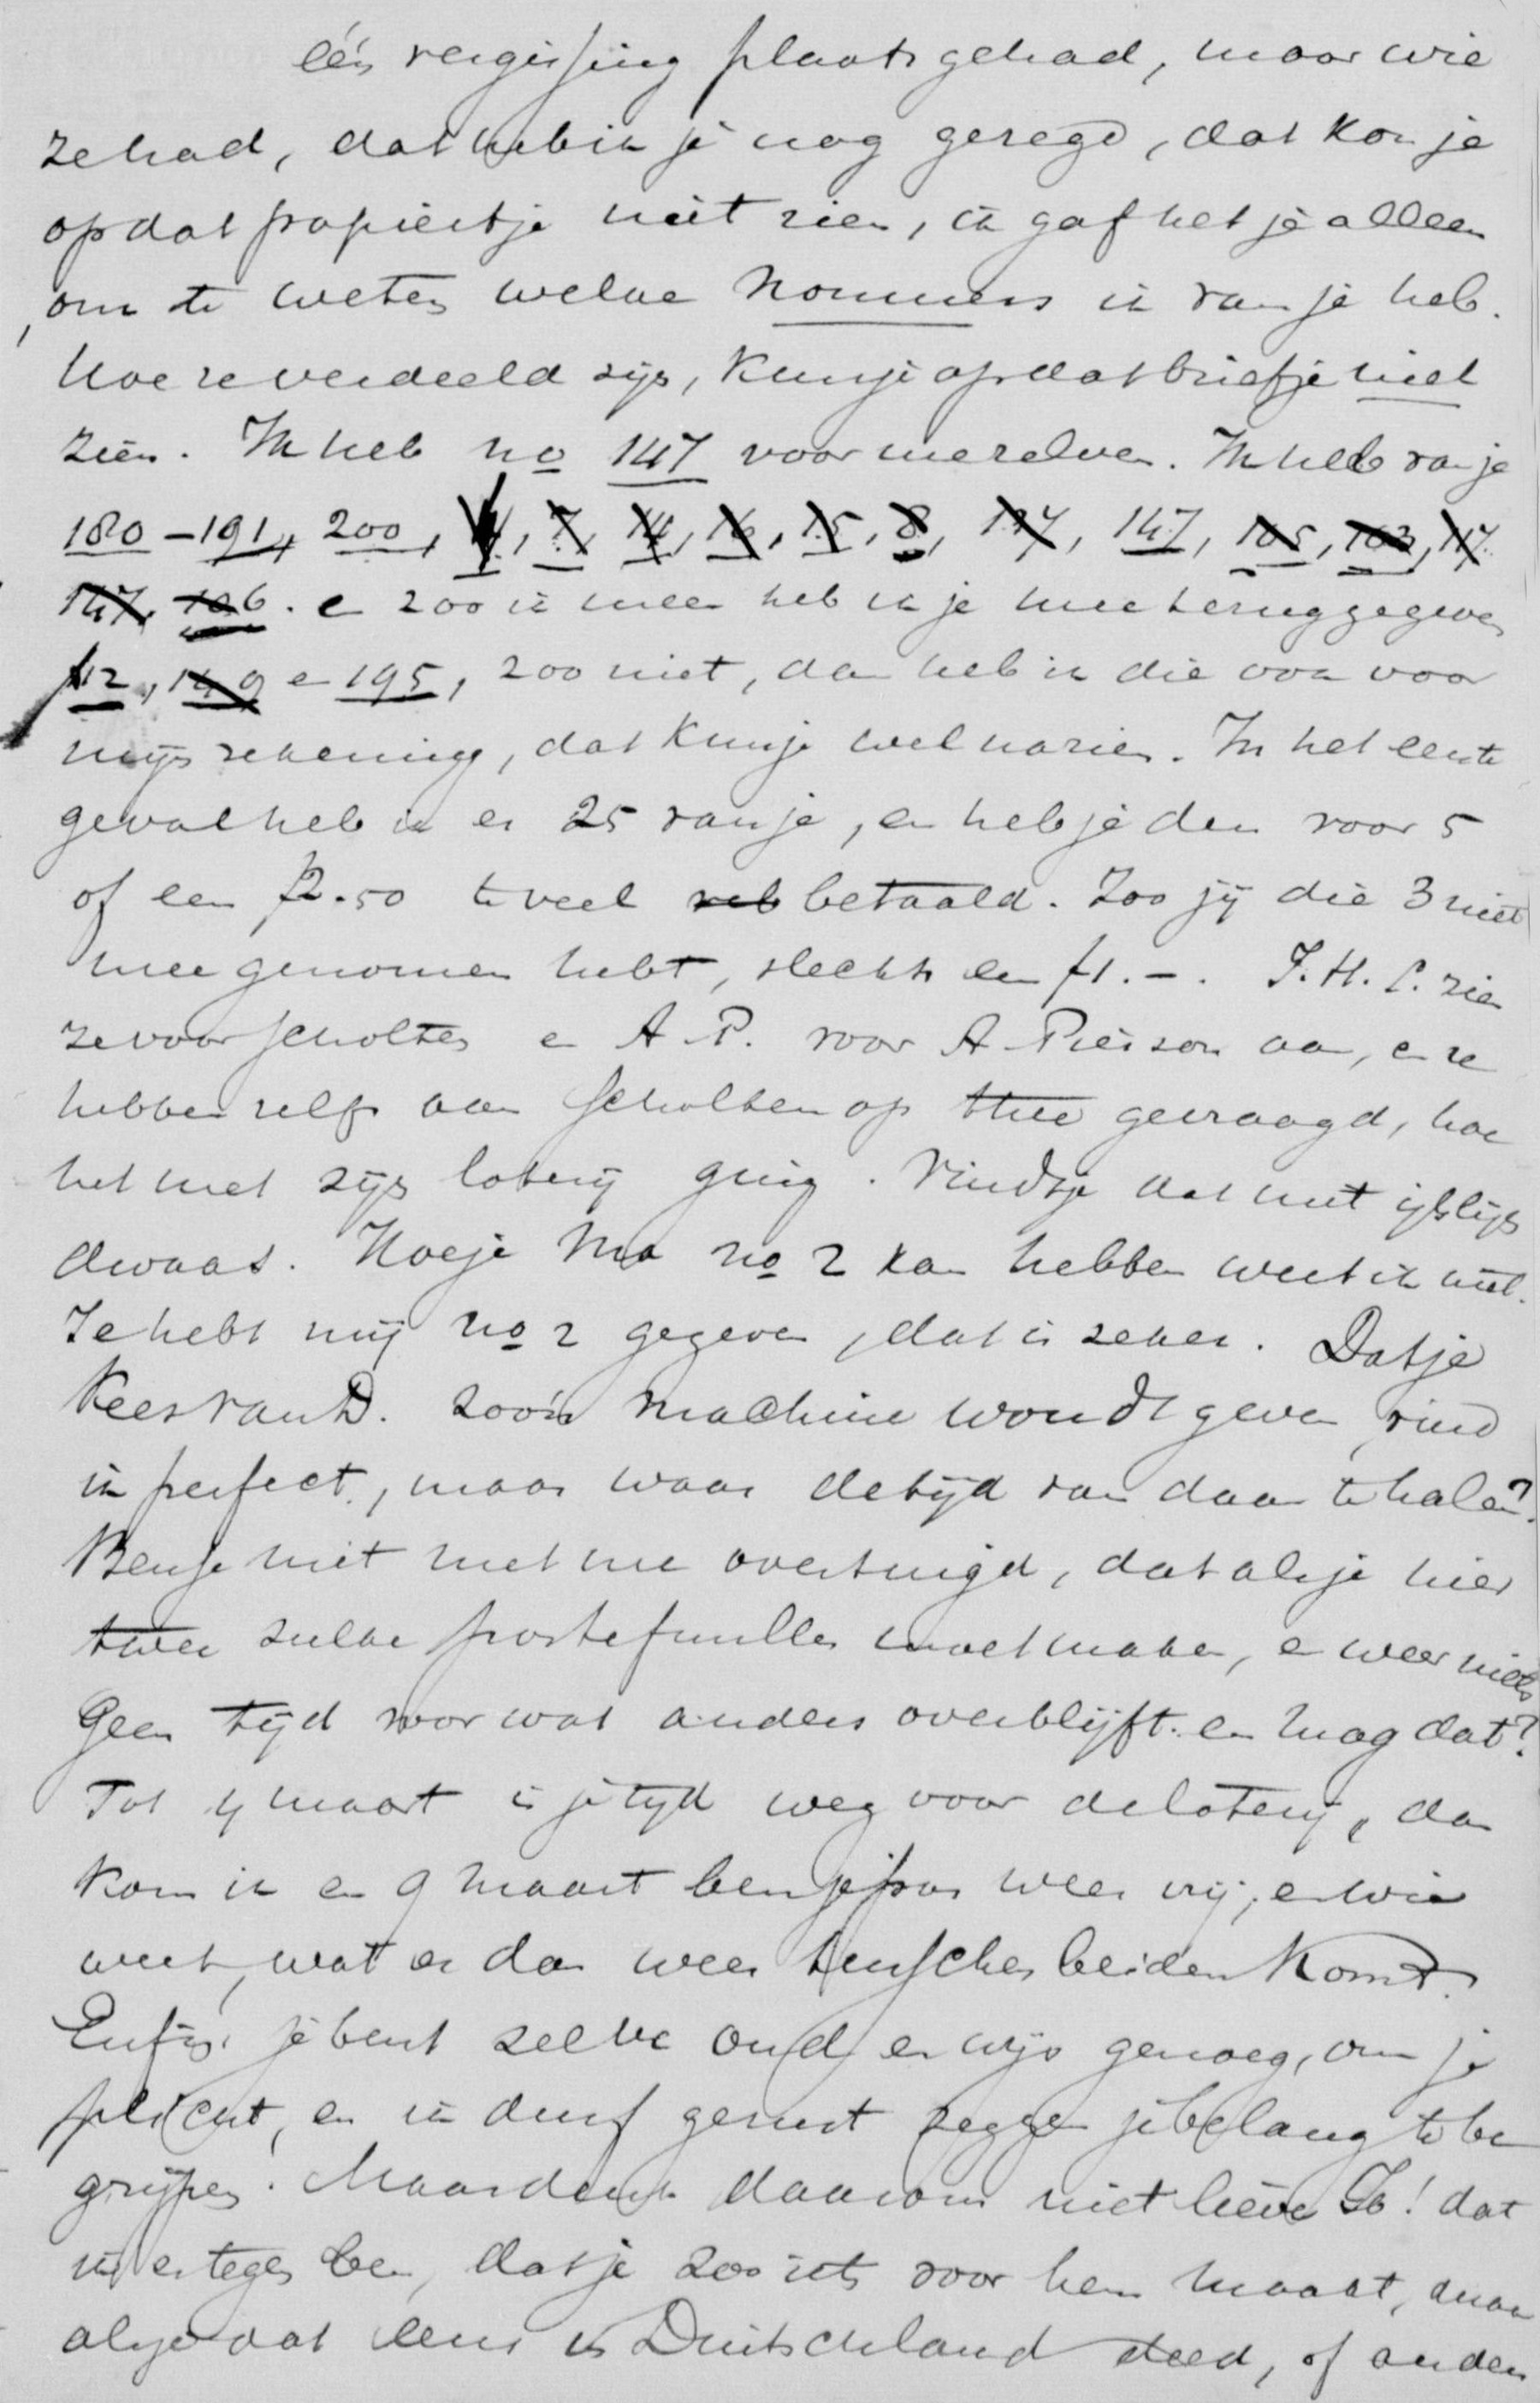 één vergissing plaats gehad, maar wie
ze had, dat heb ik je nog gezegd, dat kon je
op dat papiertje niet zien, ik gaf het je alleen
om te weten welke nommers ik van je heb.
Hoe ze verdeeld zijn, kun je op dat briefje niet
zien. Ik heb no 147 voor mezelven. Ik heb van je
180 – 191, 200, 4, 7, 14, 16, 15, 8, 137, 147, 105, 103, 117.
147, 106. en 200 ik meen heb ik je mee teruggegeven
112, 149 en 195, 200 niet, dan heb ik die ook voor
mijn rekening, dat kun je wel nazien. In het eerste
geval heb ik er 25 van je, en heb je den voor 5
of een f2.50 te veel betaald. Zoo jij die 3 niet
mee genomen hebt, slechts een f1.–. J.H.S. zien
ze voor Scholten en A.P. voor A Pierson aan, en ze
hebben zelfs aan Scholten op thee gevraagd, hoe
het met zijn loterij ging. Vindt je dat niet ijslijk
dwaas. Hoe je Ma no 2 kan hebben weet ik niet.
Je hebt mij no 2 gegeven, dat is zeker. Dat je
Kees van D. zoo'n machine woudt geven vind
ik perfect, maar waar de tijd van daan te halen?
Ben je niet met me overtuigd, dat als je hier
twee zulke portefeuilles moet maken, er weer niets
Geen tijd voor wat anders overblijft. en mag dat?
Tot 4 maart is je tijd weg voor de loterij, dan
kom ik en 9 maart ben je pas weer vrij, en wie
weet, wat er dan weer tusschen beiden komt.
Enfin je bent zelve oud en wijs genoeg, om je
plicht, en ik durf gerust zeggen je belang te be
grijpen. Maar denk daarom niet lieve Jo! dat
ik er tegen ben, dat je zoo iets voor hem maakt, maar
als je dat eens in Duitschland deed, of anders